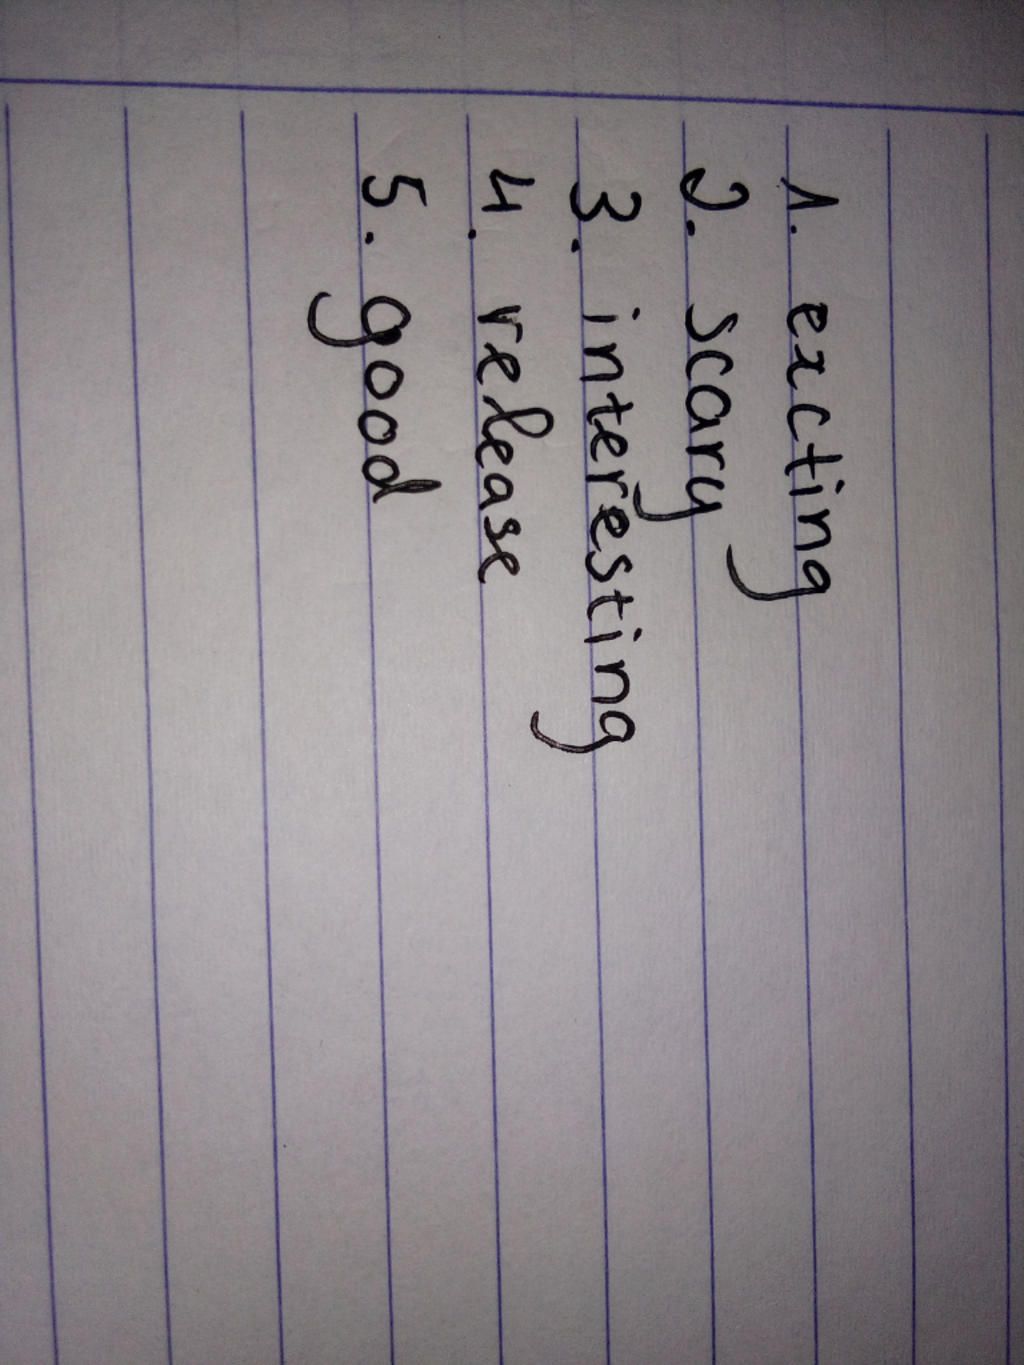 1. excting
2. scary
3. interesting
4. release
5. good